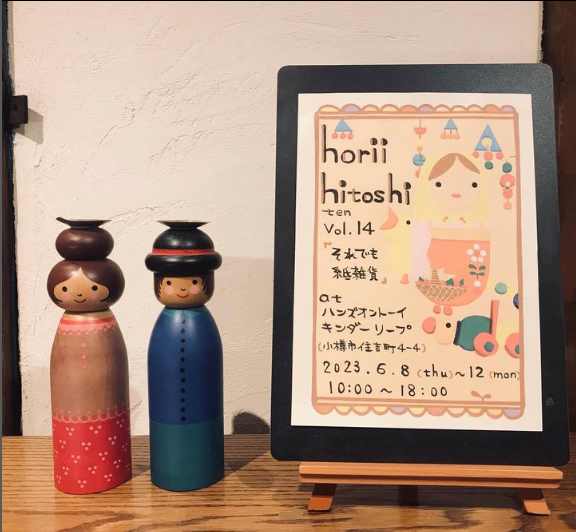 horii
hitoshi
ten
Vol.14
「それでも
紙雑貨」
at
ハンズオントーイ
キンダーリープ
(小樽市住吉町4-4)
2023.6.8(thu)~12(mon)
10:00~18:00